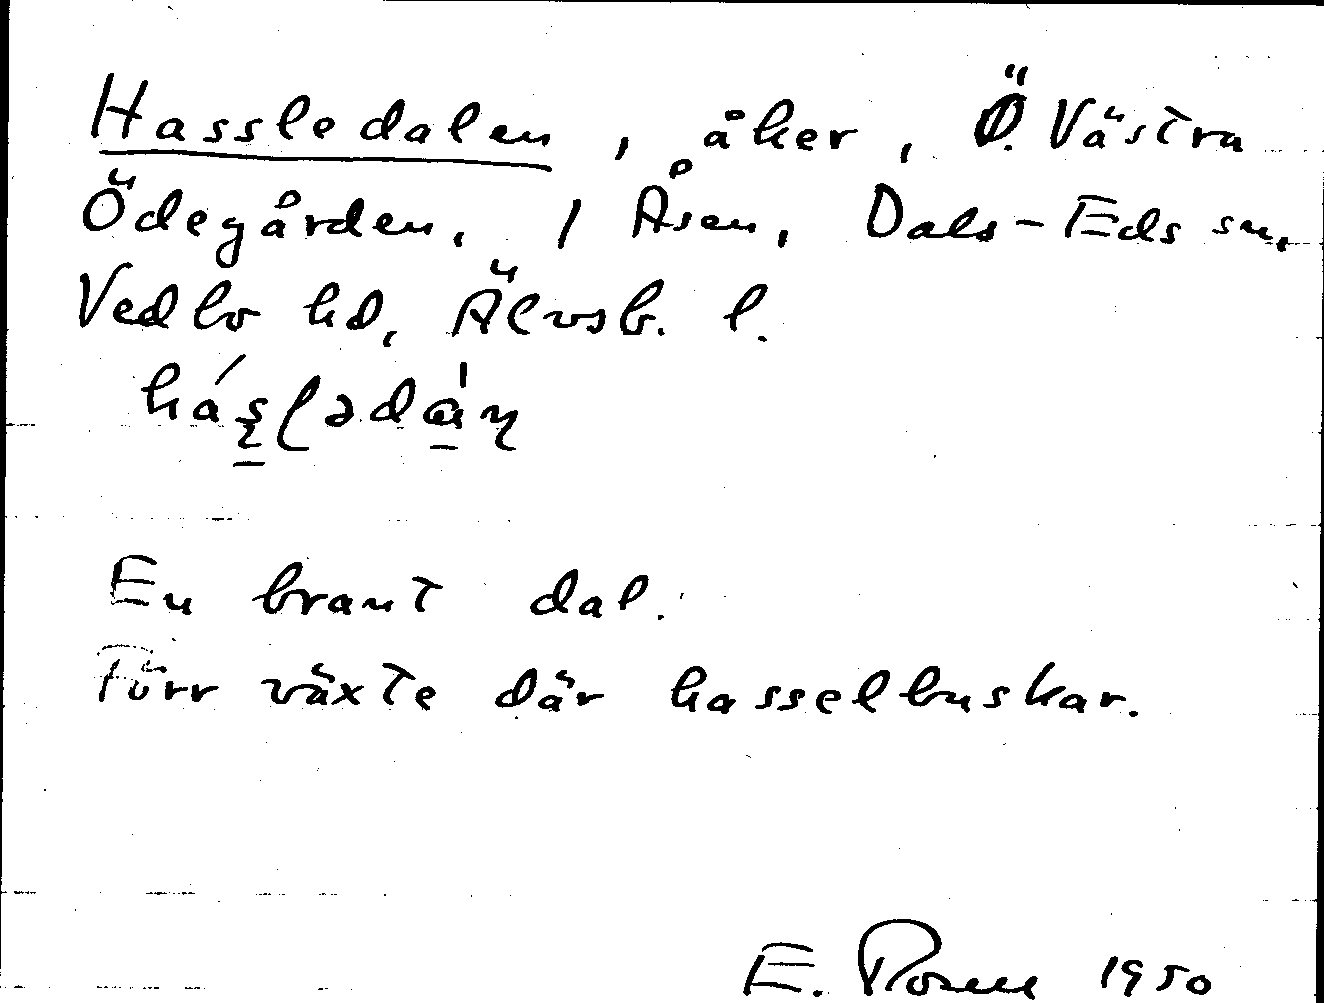 Hassledalen, åker, Ö. Västra
Ödegården, 1 Åsen, Dals-Eds sn,
Vedbo hd, Älvsb. l.
En brant dal.
Förr växte där hasselbuskar.
E. 1950